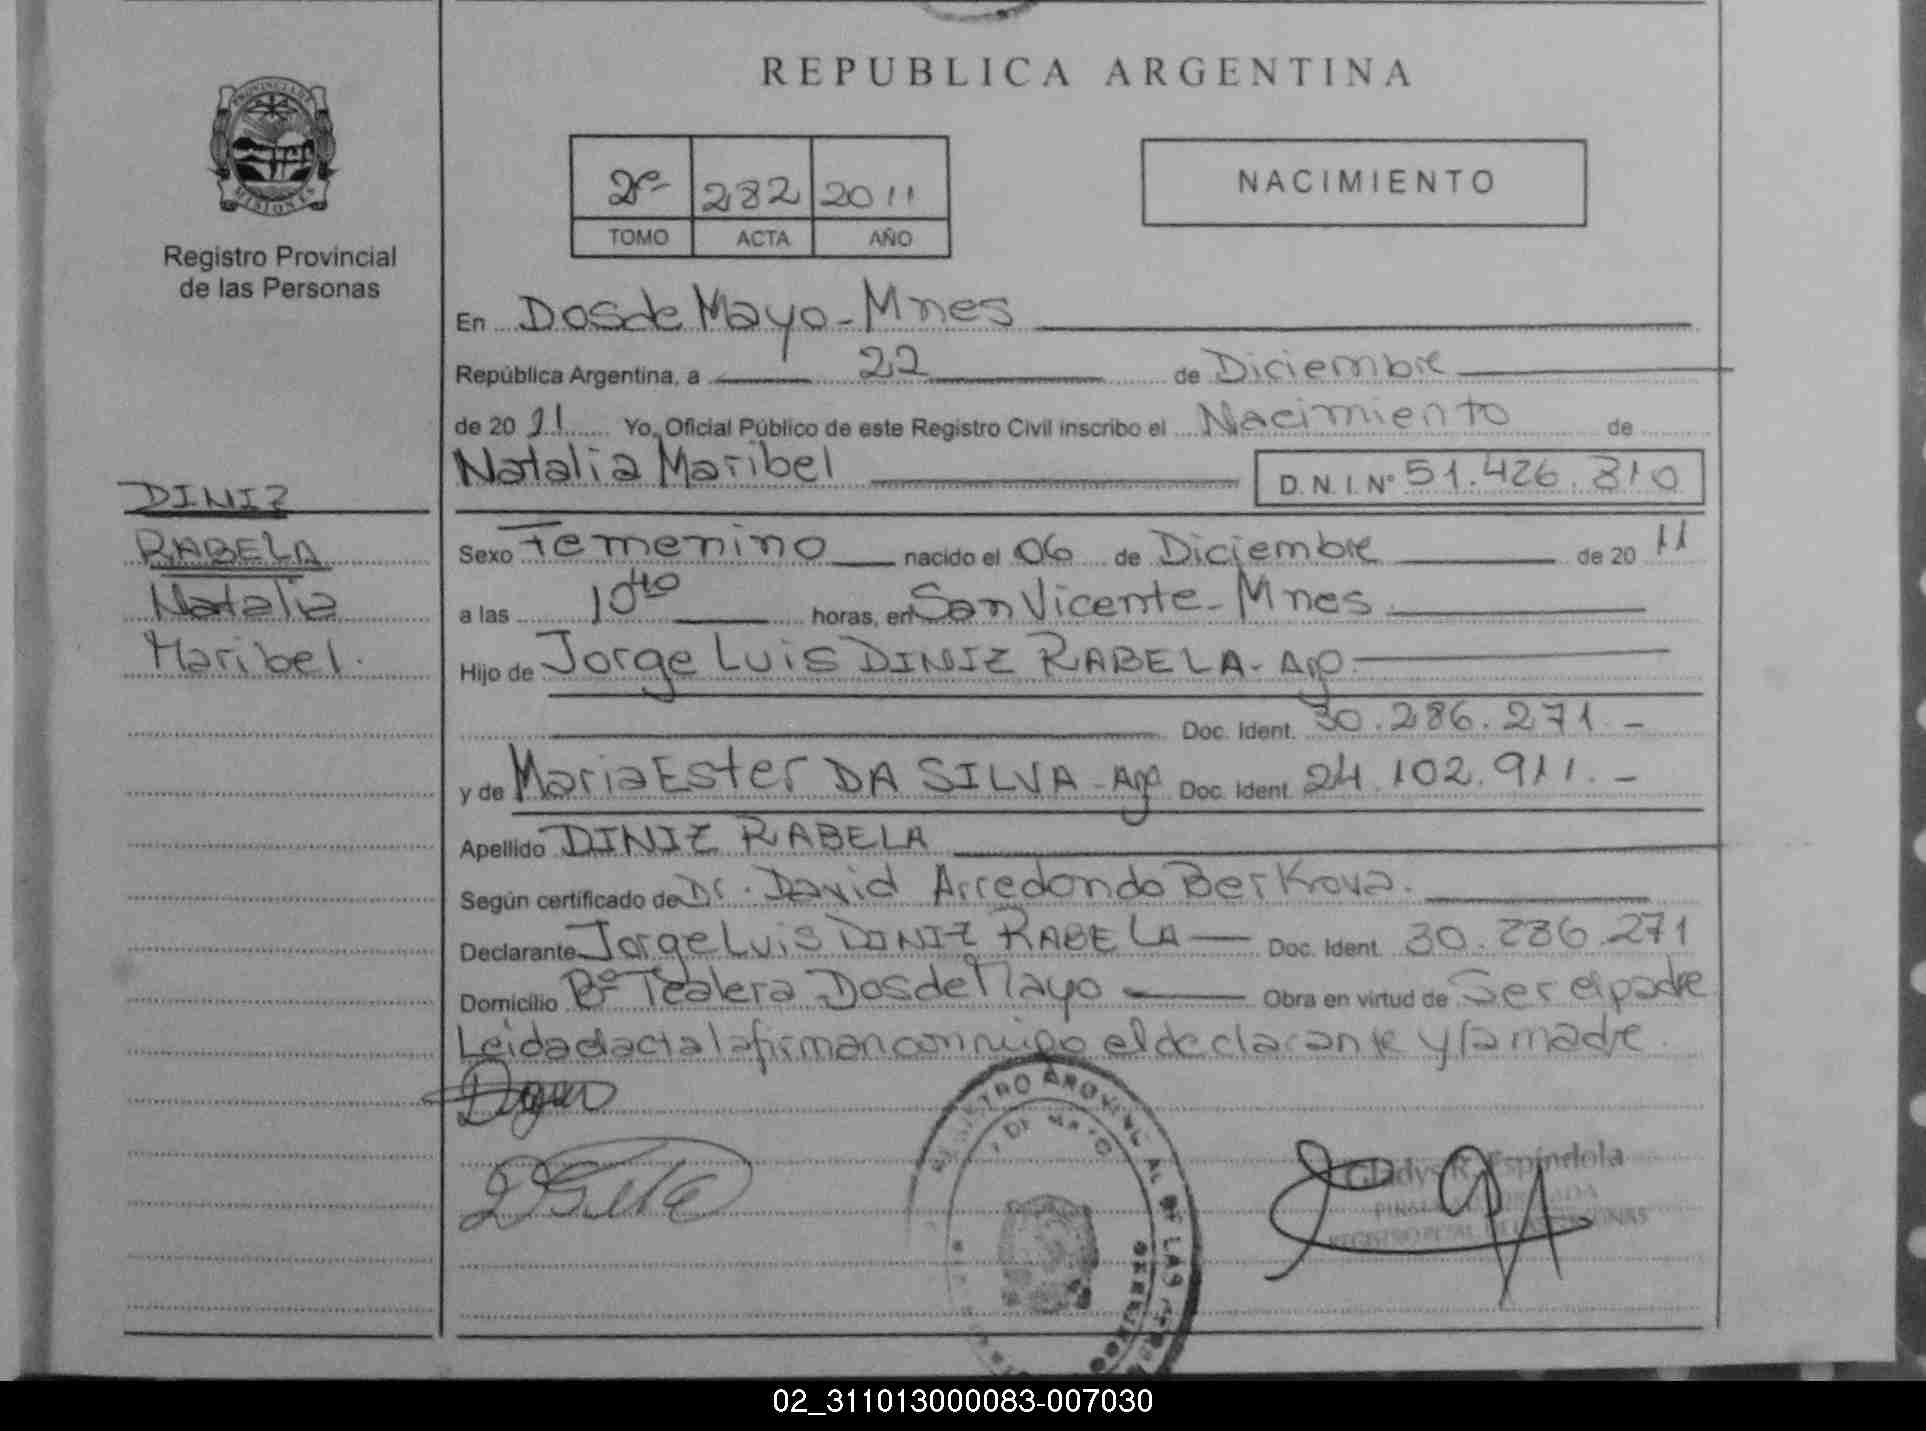 REPUBLICA ARGENTINA
PROVINCIA DE MISIONES
Registro Provincial
de las Personas
2º 282 2011
TOMO ACTA AÑO
NACIMIENTO
En Dos de Mayo - Mnes
República Argentina, a 22 de Diciembre
de 20 11 Yo, Oficial Público de este Registro Civil inscribo el Nacimiento de
Natalia Maribel D.N.I.Nº 51.426.810
DINIZ
RABELA
Natalia
Maribel.
Sexo Femenino nacido el 06 de Diciembre de 20 11
a las 10 40 horas, en San Vicente - Mnes
Hijo de Jorge Luis DINIZ RABELA - Arg.
Doc. Ident. 30.286.271 -
y de Maria Ester DA SILVA - Arg Doc. Ident. 24.102.911. -
Apellido DINIZ RABELA
Según certificado de Dr. David Arredondo Berkrova.
Declarante Jorge Luis DINIZ RABELA — Doc. Ident. 30.286.271
Domicilio Bº Tealera Dos de Mayo — Obra en virtud de Ser el padre
Leida el acta la firman conmigo el declarante y la madre.
REGISTRO PROVINCIAL DE LAS
DE MAYO
Gladys R. Espíndola
02_311013000083-007030